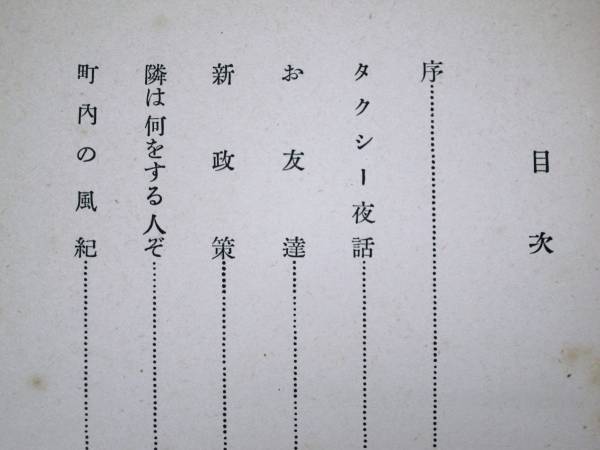 目次
序
タクシー夜話
お友達
新政策
隣は何をする人ぞ
町內の風紀